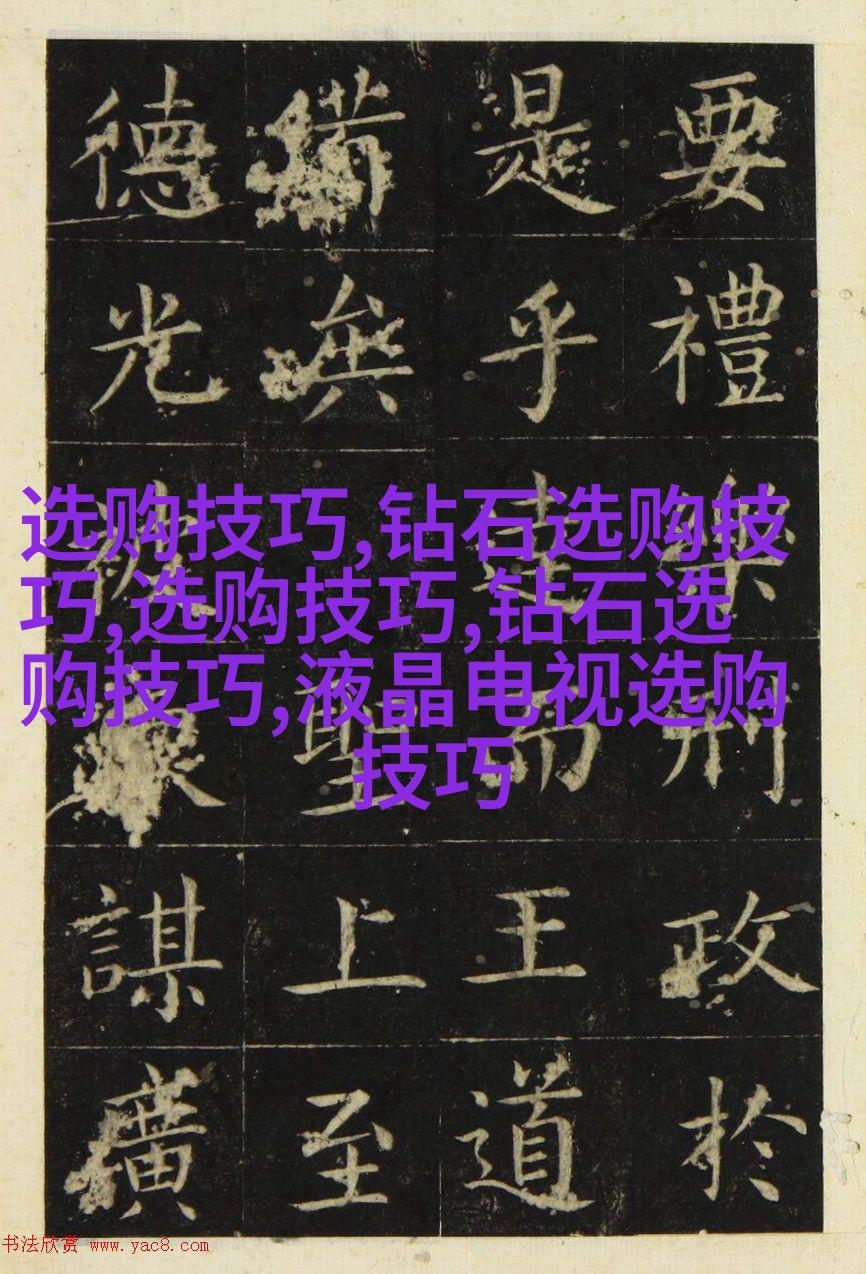 要禮樂刑政於
是乎而王道
無聖上至
德光謀廣
选购技巧,钻石选购技
巧,选购技巧,钻石选
购技巧,液晶电视选购
技巧
书法欣赏 www.yac8.com